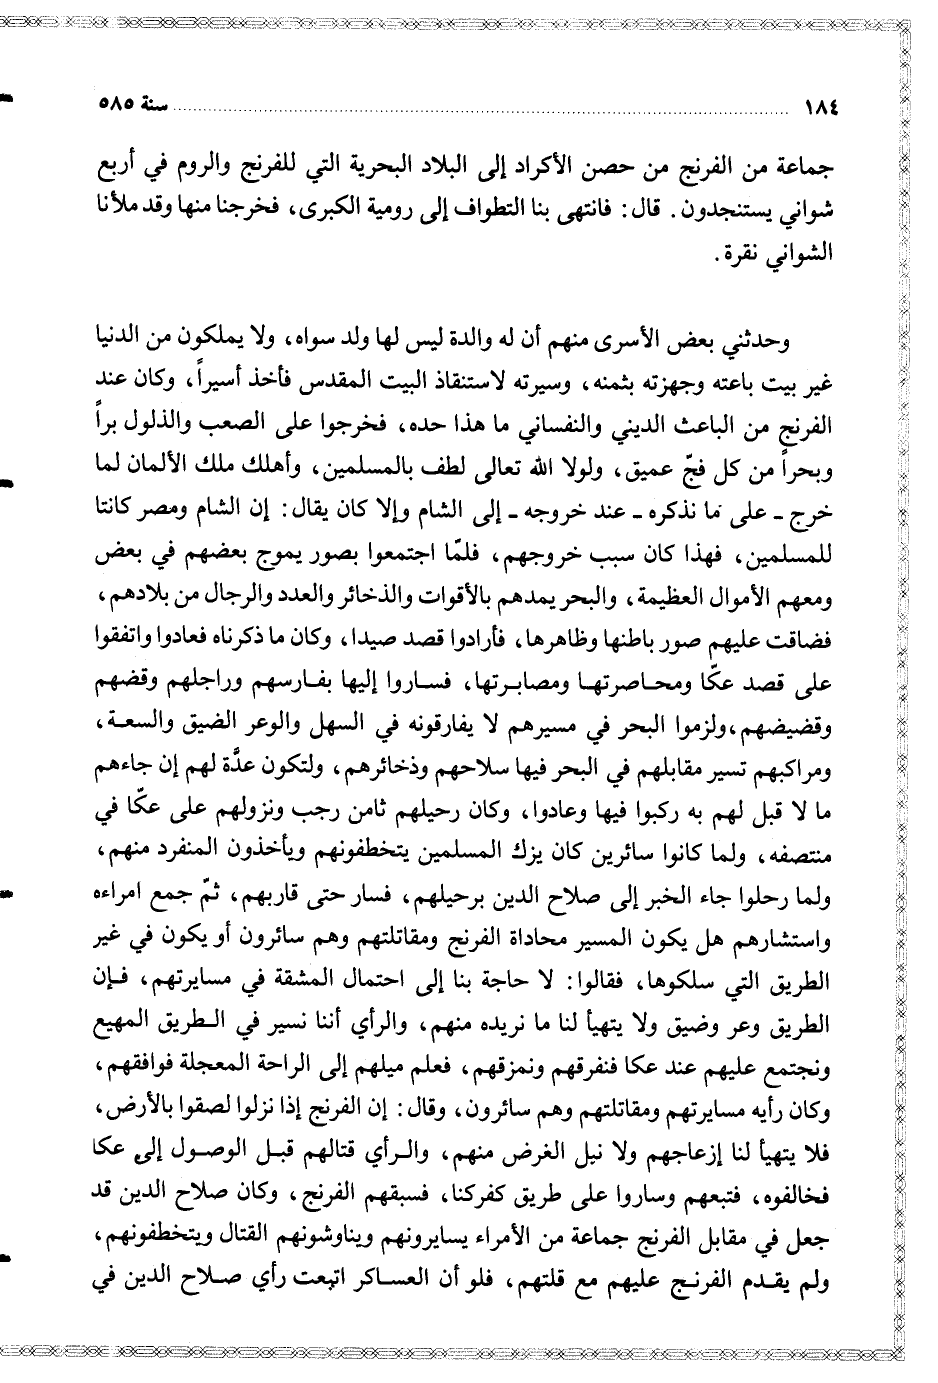 ١٨٤ ........ سنة ٥٨٥
جماعة من الفرنج من حصن الأكراد إلى البلاد البحرية التي للفرنج والروم في أربع
شواني يستنجدون. قال: فانتهى بنا التطواف إلى رومية الكبرى، فخرجنا منها وقد ملأنا
الشواني نقرة.
وحدثني بعض الأسرى منهم أن له والدة ليس لها ولد سواه، ولا يملكون من الدنيا
غير بيت باعته وجهزته بثمنه، وسيرته لاستنقاذ البيت المقدس فأخذ أسيراً، وكان عند
الفرنج من الباعث الديني والنفساني ما هذا حده، فخرجوا على الصعب والذلول براً
وبحراً من كل فجّ عميق، ولولا الله تعالى لطف بالمسلمين، وأهلك ملك الألمان لما
خرج ـ على ما نذكره ـ عند خروجه ـ إلى الشام وإلا كان يقال: إن الشام ومصر كانتا
للمسلمين، فهذا كان سبب خروجهم، فلمّا اجتمعوا بصور يموج بعضهم في بعض
ومعهم الأموال العظيمة، والبحر يمدهم بالأقوات والذخائر والعدد والرجال من بلادهم،
فضاقت عليهم صور باطنها وظاهرها، فأرادوا قصد صيدا، وكان ما ذكرناه فعادوا واتفقوا
على قصد عكّا ومحاصرتها ومصابرتها، فساروا إليها بفارسهم وراجلهم وقضهم
وقضيضهم،ولزموا البحر في مسيرهم لا يفارقونه في السهل والوعر الضيق والسعة،
ومراكبهم تسير مقابلهم في البحر فيها سلاحهم وذخائرهم، ولتكون عدَّة لهم إن جاءهم
ما لا قبل لهم به ركبوا فيها وعادوا، وكان رحيلهم ثامن رجب ونزولهم على عكّا في
منتصفه، ولما كانوا سائرين كان يزك المسلمين يتخطفونهم ويأخذون المنفرد منهم،
ولما رحلوا جاء الخبر إلى صلاح الدين برحيلهم، فسار حتى قاربهم، ثمّ جمع امراءه
واستشارهم هل يكون المسير محاذاة الفرنج ومقاتلتهم وهم سائرون أو يكون في غير
الطريق التي سلكوها، فقالوا: لا حاجة بنا إلى احتمال المشقة في مسايرتهم، فإن
الطريق وعر وضيق ولا يتهيأ لنا ما نريده منهم، والرأي أننا نسير في الطريق المهيع
ونجتمع عليهم عند عكا فنفرقهم ونمزقهم، فعلم ميلهم إلى الراحة المعجلة فوافقهم،
وكان رأيه مسايرتهم ومقاتلتهم وهم سائرون، وقال: إن الفرنج إذا نزلوا لصقوا بالأرض،
فلا يتهيأ لنا إزعاجهم ولا نيل الغرض منهم، والرأي قتالهم قبل الوصول إلى عكا
فخالفوه، فتبعهم وساروا على طريق كفركنا، فسبقهم الفرنج، وكان صلاح الدين قد
جعل في مقابل الفرنج جماعة من الأمراء يسايرونهم ويناوشونهم القتال ويتخطفونهم،
ولم يقدم الفرنج عليهم مع قلتهم، فلو أن العساكر اتبعت رأي صلاح الدين في